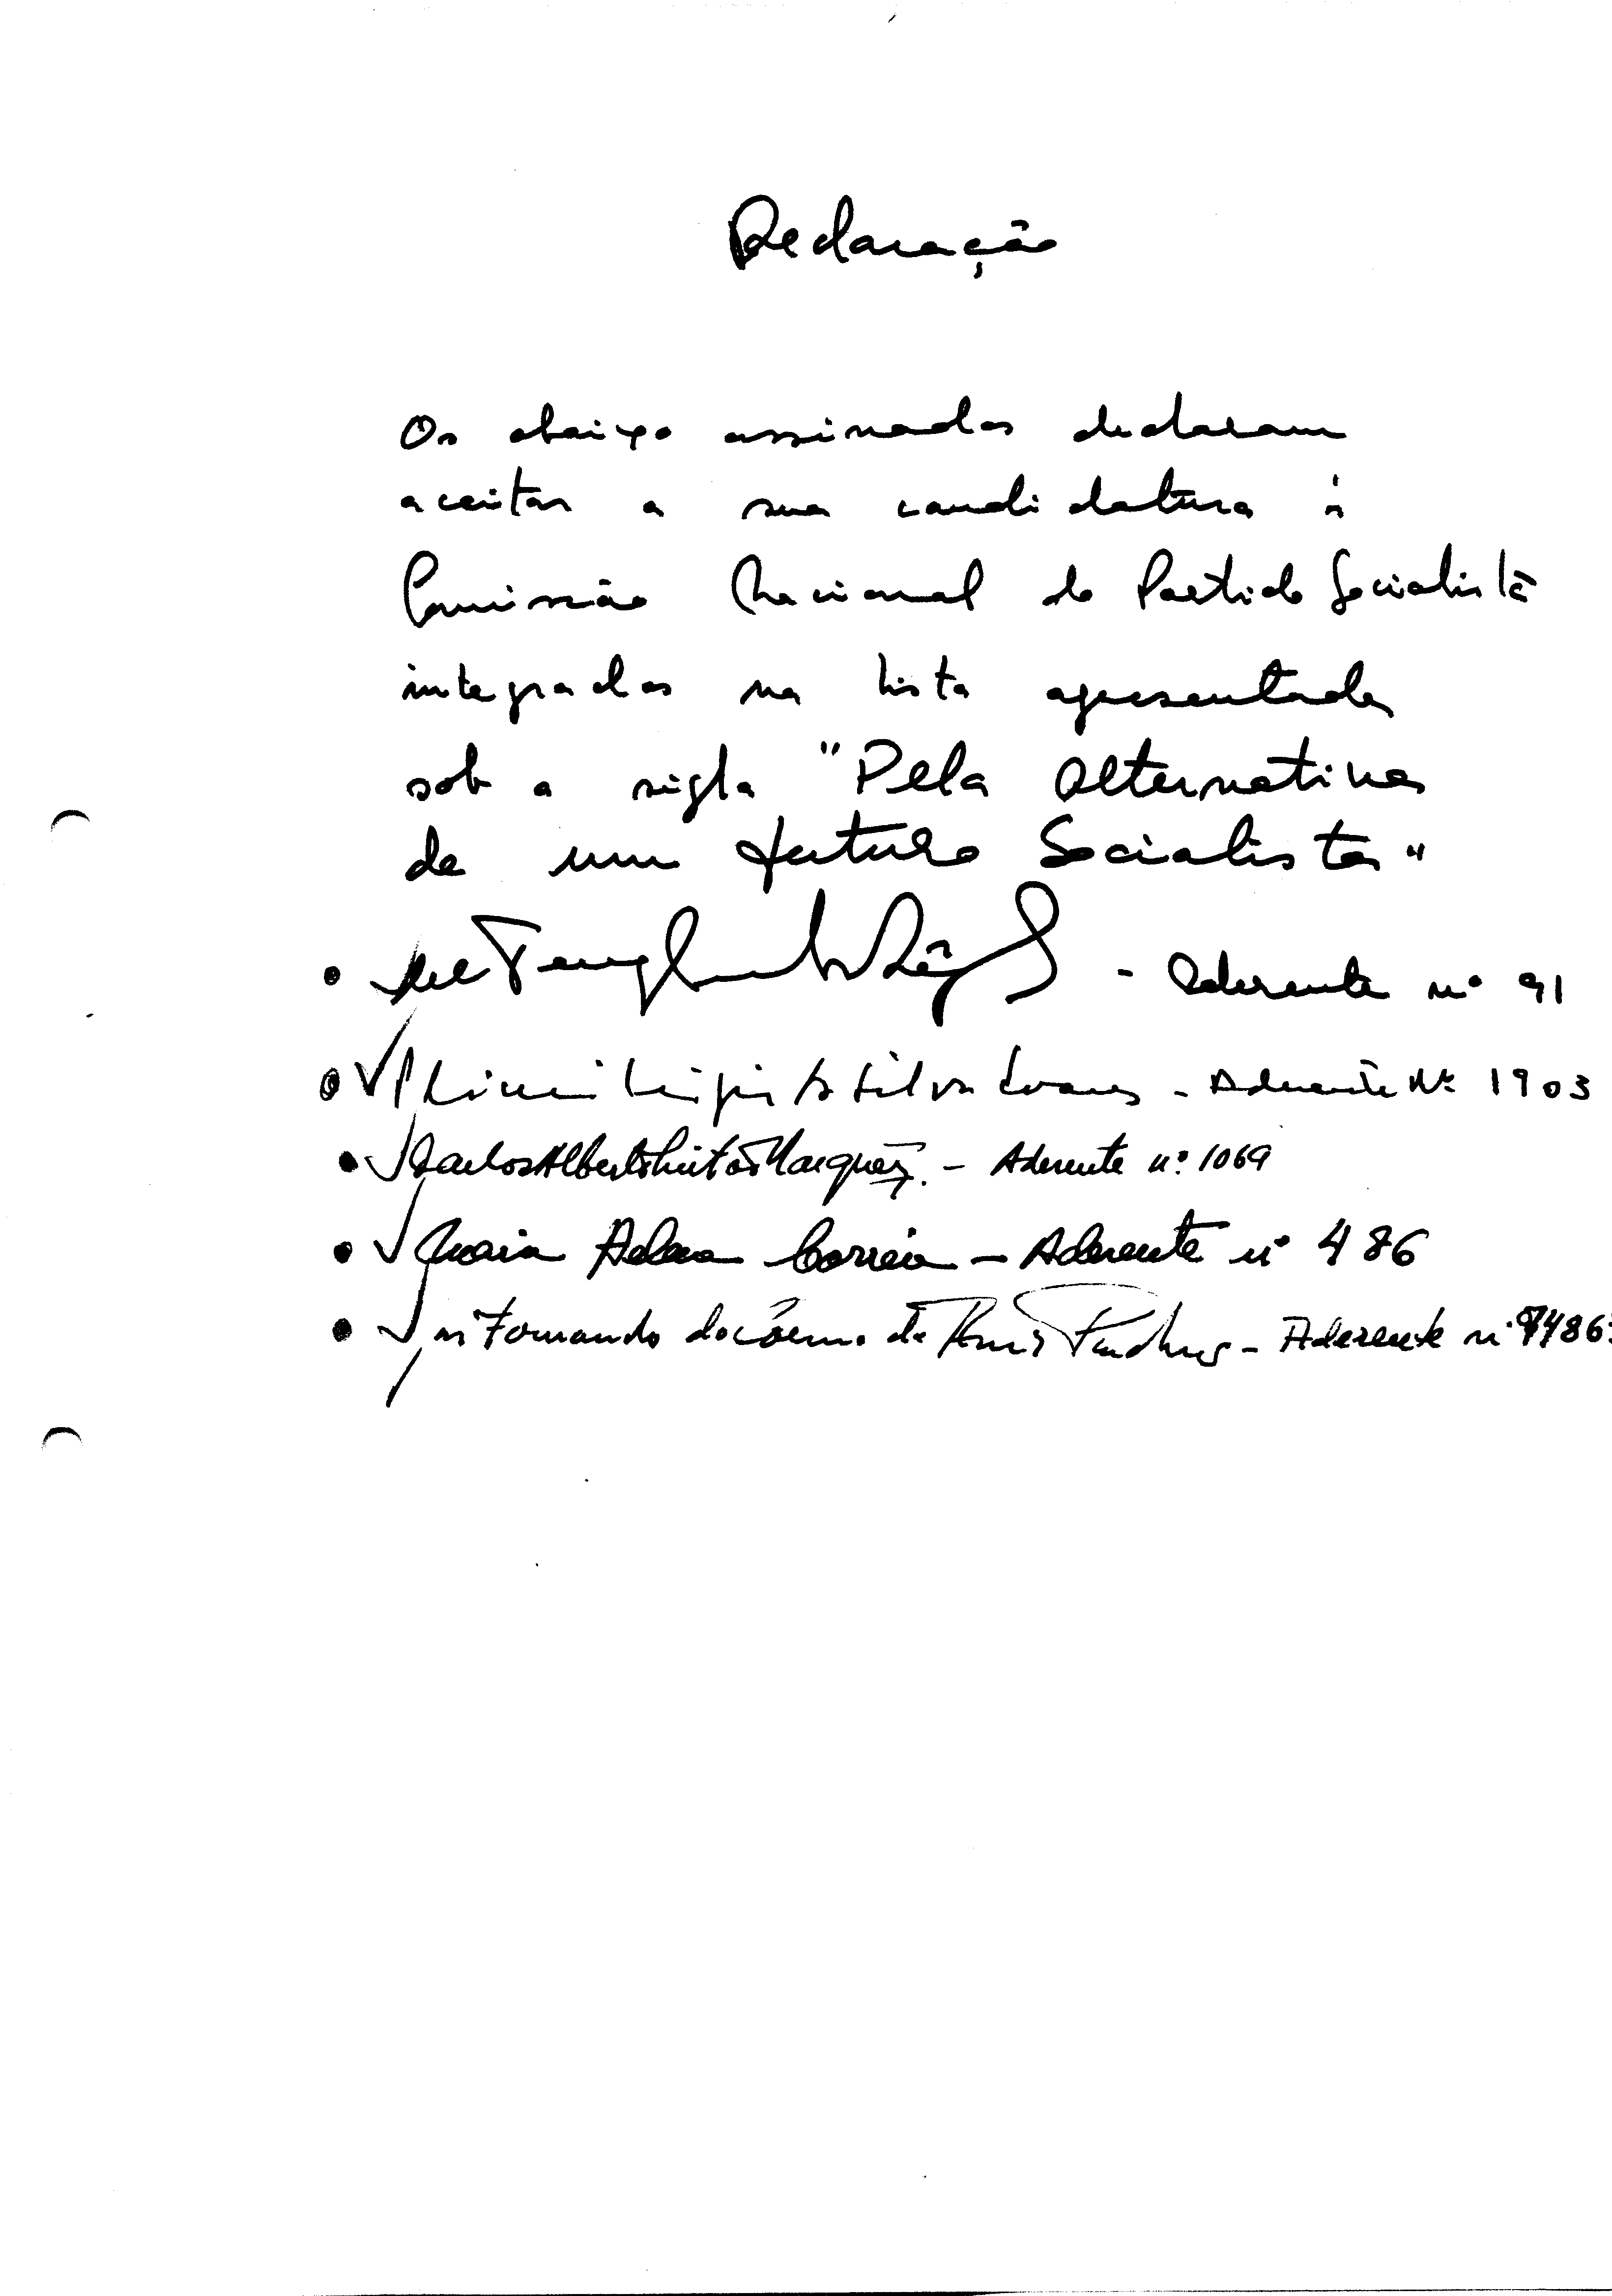 Declaração
Os abaixo assinados declaram
aceitar a sua candidatura à
Comissão Nacional do Partido Socialista
integrados na lista apresentada
sob a sigla "Pela Alternativa
de um futuro Socialista"
- Aderente nº 91
da Silva - Aderente Nº 1903
Carlos Alberto Marques - Aderente nº 1069
Maria Correia - Aderente nº 486
Fernando de - Aderente nº